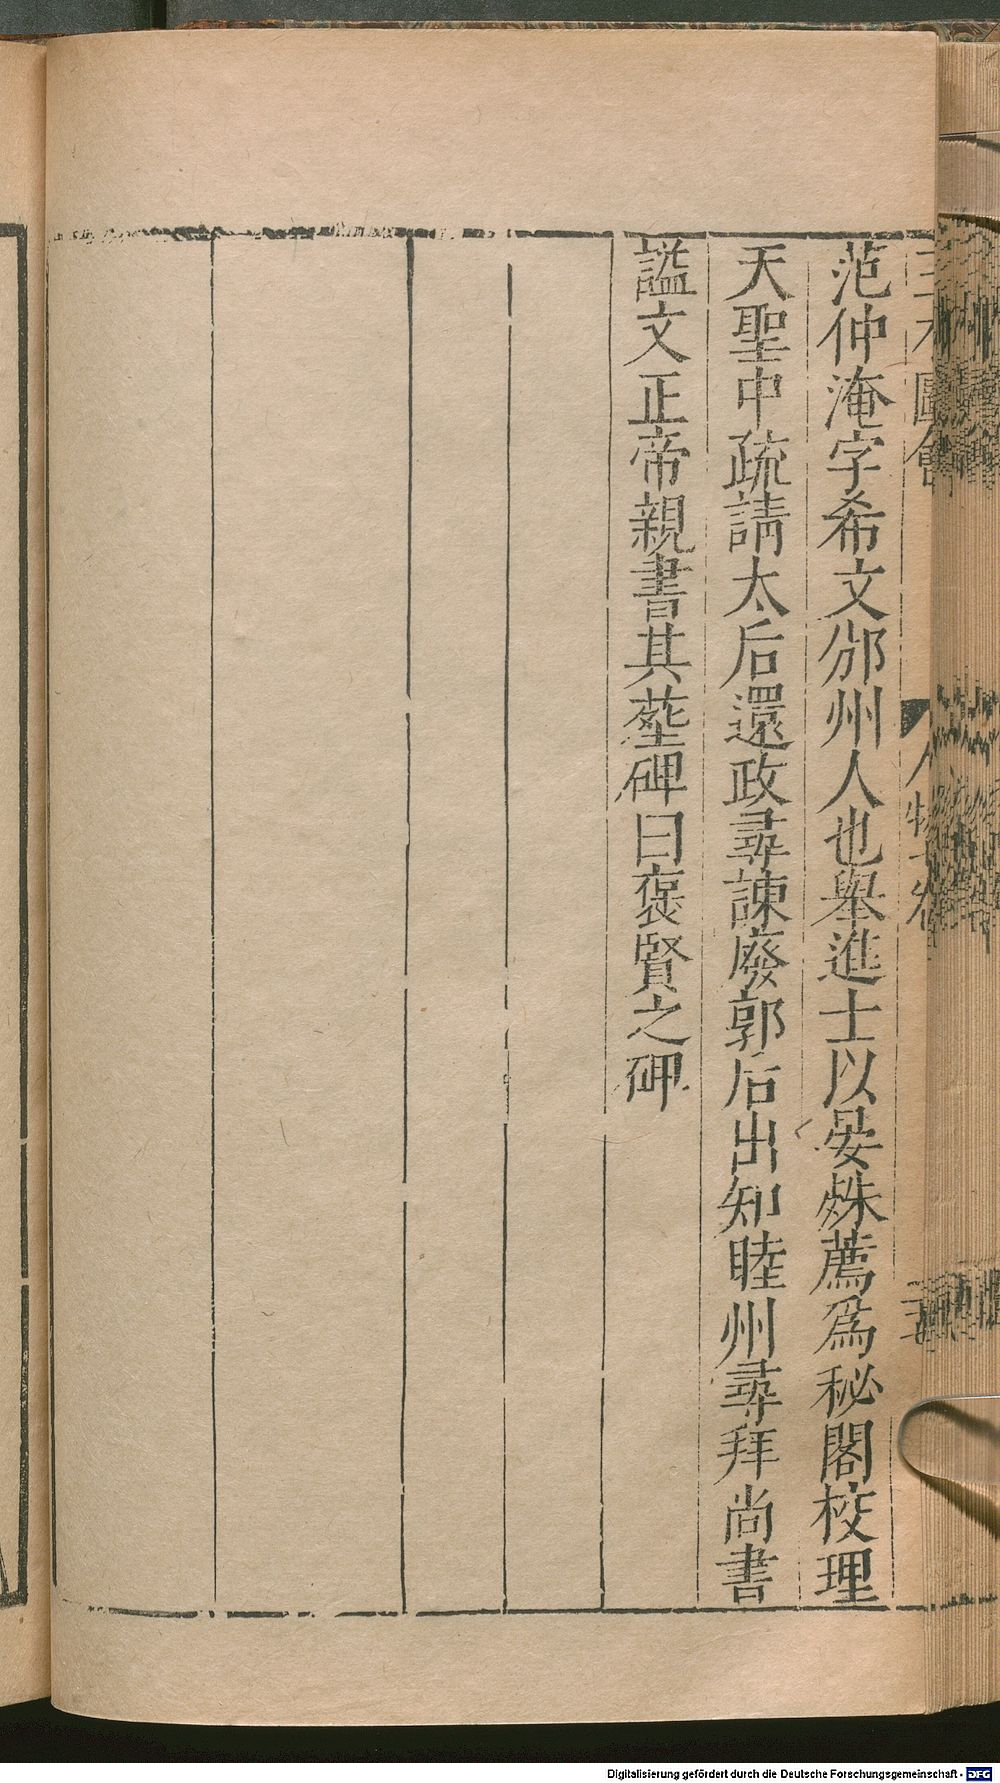 三才圖會
人物六卷
范仲淹字希文邠州人也舉進士以晏殊薦爲秘閣校理
天聖中疏請太后還政尋諫廢郭后出知睦州尋拜尚書
謚文正帝親書其塟碑曰褒賢之碑
Digitalisierung gefördert durch die Deutsche Forschungsgemeinschaft - DFG